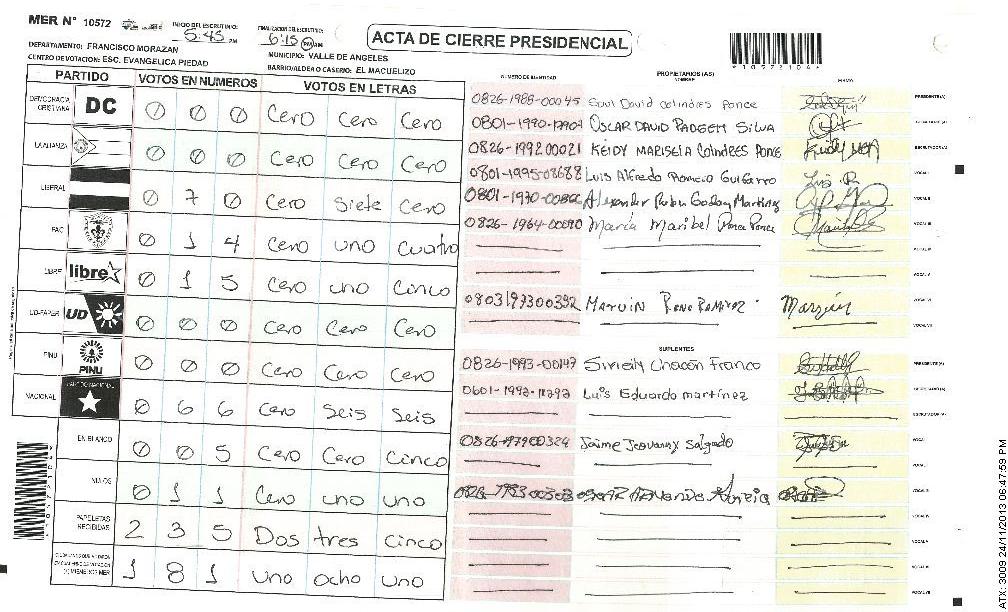 MER N° 10572
INICIO DEL ESCRUTINIO: 5:45 PM
FINALIZACION DEL ESCRUTINIO: 6:15 PM AM
ACTA DE CIERRE PRESIDENCIAL
DEPARTAMENTO: FRANCISCO MORAZAN
MUNICIPIO: VALLE DE ANGELES
CENTRO DE VOTACION: ESC. EVANGELICA PIEDAD
BARRIO/ALDEA O CASERIO: EL MACUELIZO
PARTIDO VOTOS EN NUMEROS VOTOS EN LETRAS
DEMOCRACIA CRISTIANA DC 0 0 0 Cero Cero Cero
LA ALIANZA 0 0 0 Cero Cero Cero
LIBERAL 0 7 0 Cero Siete Cero
PAC 0 1 4 Cero uno cuatro
LIBRE libre 0 1 5 Cero uno cinco
UD-FAPER UD 0 0 0 Cero Cero Cero
PINU PINU 0 0 0 Cero Cero Cero
NACIONAL 0 6 6 Cero Seis Seis
EN BLANCO 0 0 5 Cero Cero Cinco
NULOS 0 1 1 Cero uno uno
PAPELETAS RECIBIDAS 2 3 5 Dos tres cinco
1 8 1 uno ocho uno
NUMERO DE IDENTIDAD
PROPIETARIOS (AS)
NOMBRE
FIRMA
0826-1988-00045 Saul David Colindres Ponce PRESIDENTE(A)
OSCAR DAVID PADGEM SILVA SECRETARIO(A)
0826-199200021 KEIDY MARISELA COlNDRES PONCE ESCRUTADOR(A)
0801-1995-08688 Luis Alfredo Romero Gutierro Luis R. VOCAL I
Alexander Godoy Martinez VOCAL II
0826-1964-00090 Maria Maribel Ponce Ponce VOCAL III
VOCAL IV
VOCAL V
0803197300392 MARVIN RENE RAMIREZ Marvin VOCAL VI
VOCAL VII
SUPLENTES
0826-1993-00147 Sirreily Chacón Franco PRESIDENTE(A)
Luis Eduardo martinez SECRETARIO(A)
ESCRUTADOR(A)
0826-197900324 Jaime Jeovanny Salgado VOCAL I
VOCAL II
VOCAL III
VOCAL IV
VOCAL V
VOCAL VI
VOCAL VII
ATX-3009 24/11/2013 06:47:59 PM